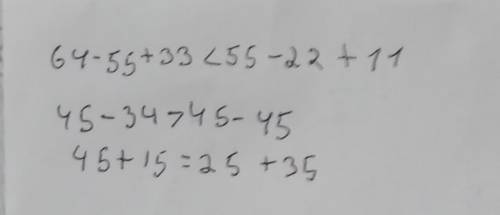 64-55+33<55-22+11
45-34>45-45
45+15=25+35